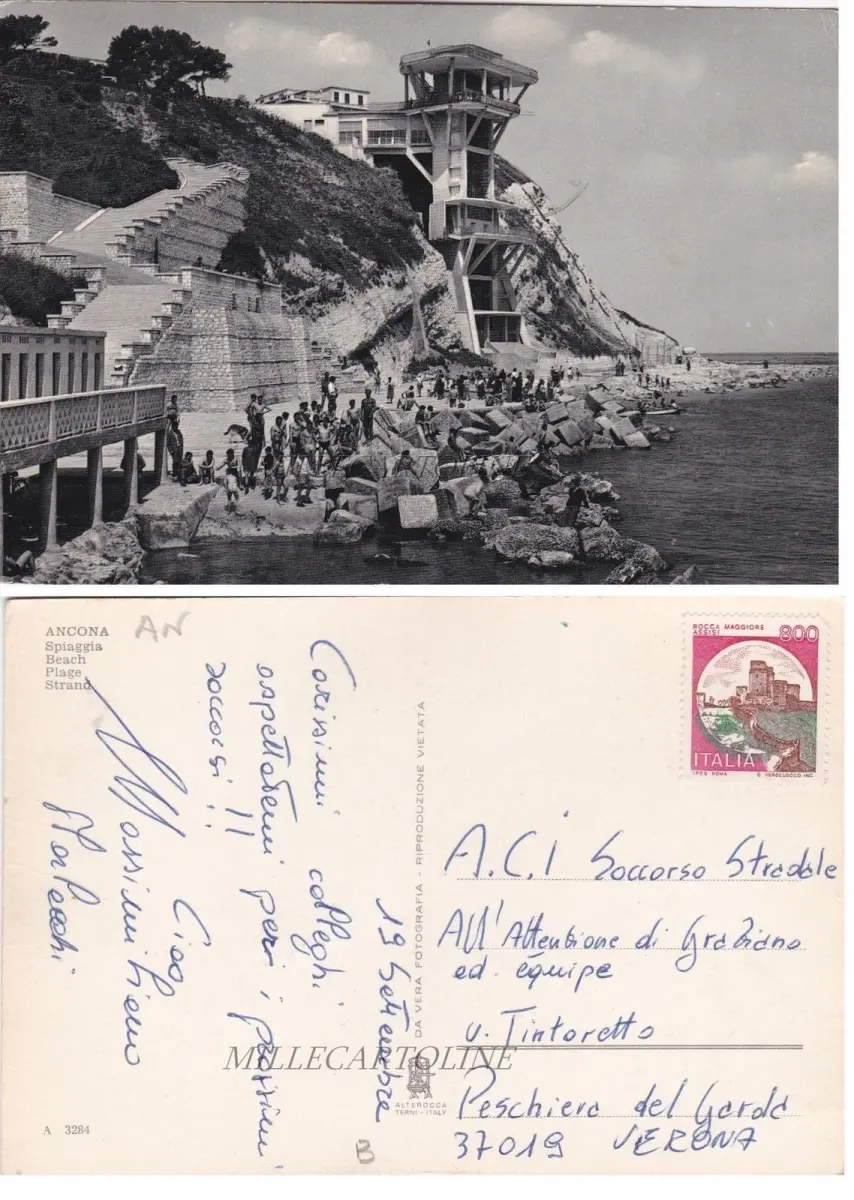 ANCONA
Spiaggia
Beach
Plage
Strand
AN
19 Settembre
Carissimi colleghi
aspettatemi per i prossimi
soccorsi!!
Ciao
Massimiliano
DA VERA FOTOGRAFIA - RIPRODUZIONE VIETATA
ALTEROCCA
TERNI - ITALY
A 3284
B
MILLECARTOLINE
ROCCA MAGGIORE
ASSISI
800
ITALIA
IPZS ROMA
A.C.I Soccorso Stradale
All'Attenzione di Graziano
ed équipe
v. Tintoretto
Peschiera del Garda
37019 VERONA